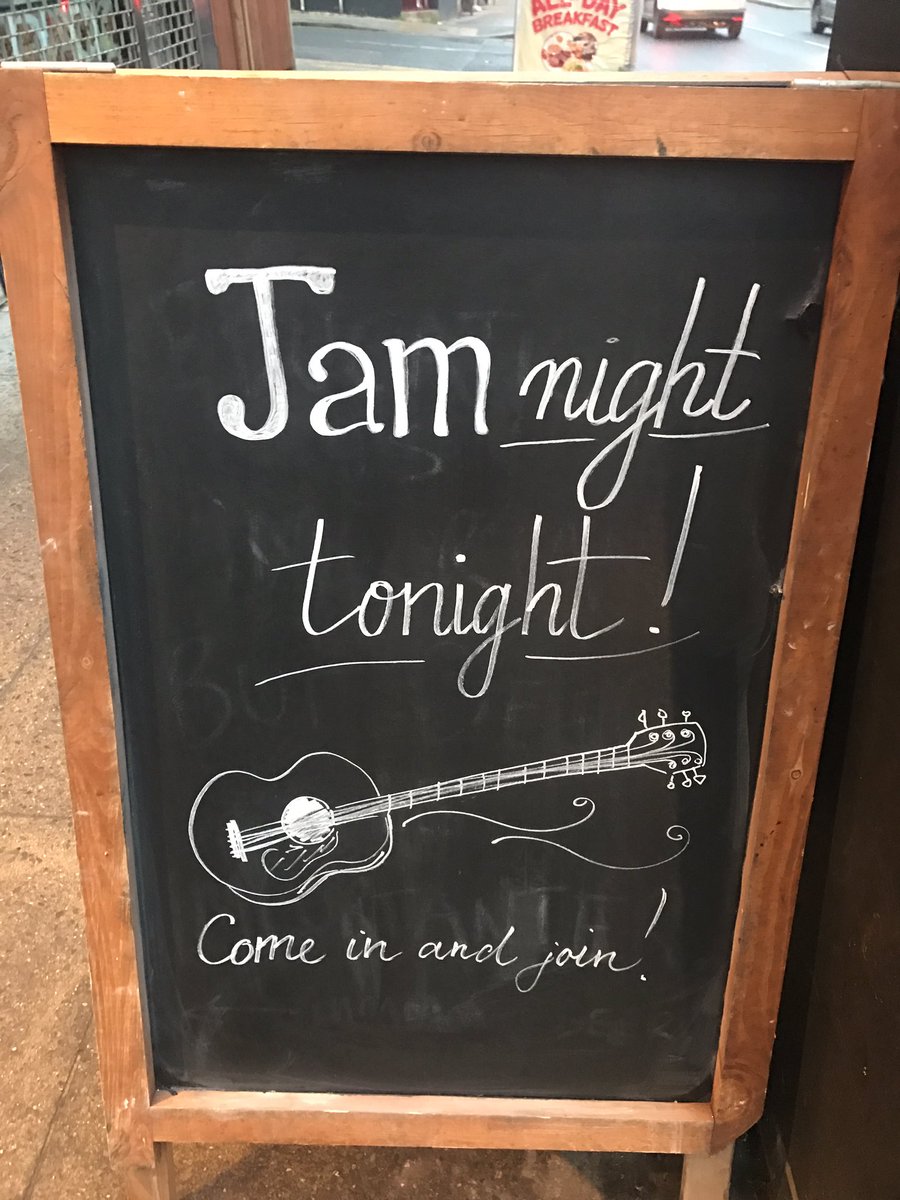 ALL DAY
BREAKFAST
Jam night
tonight!
Come in and join!